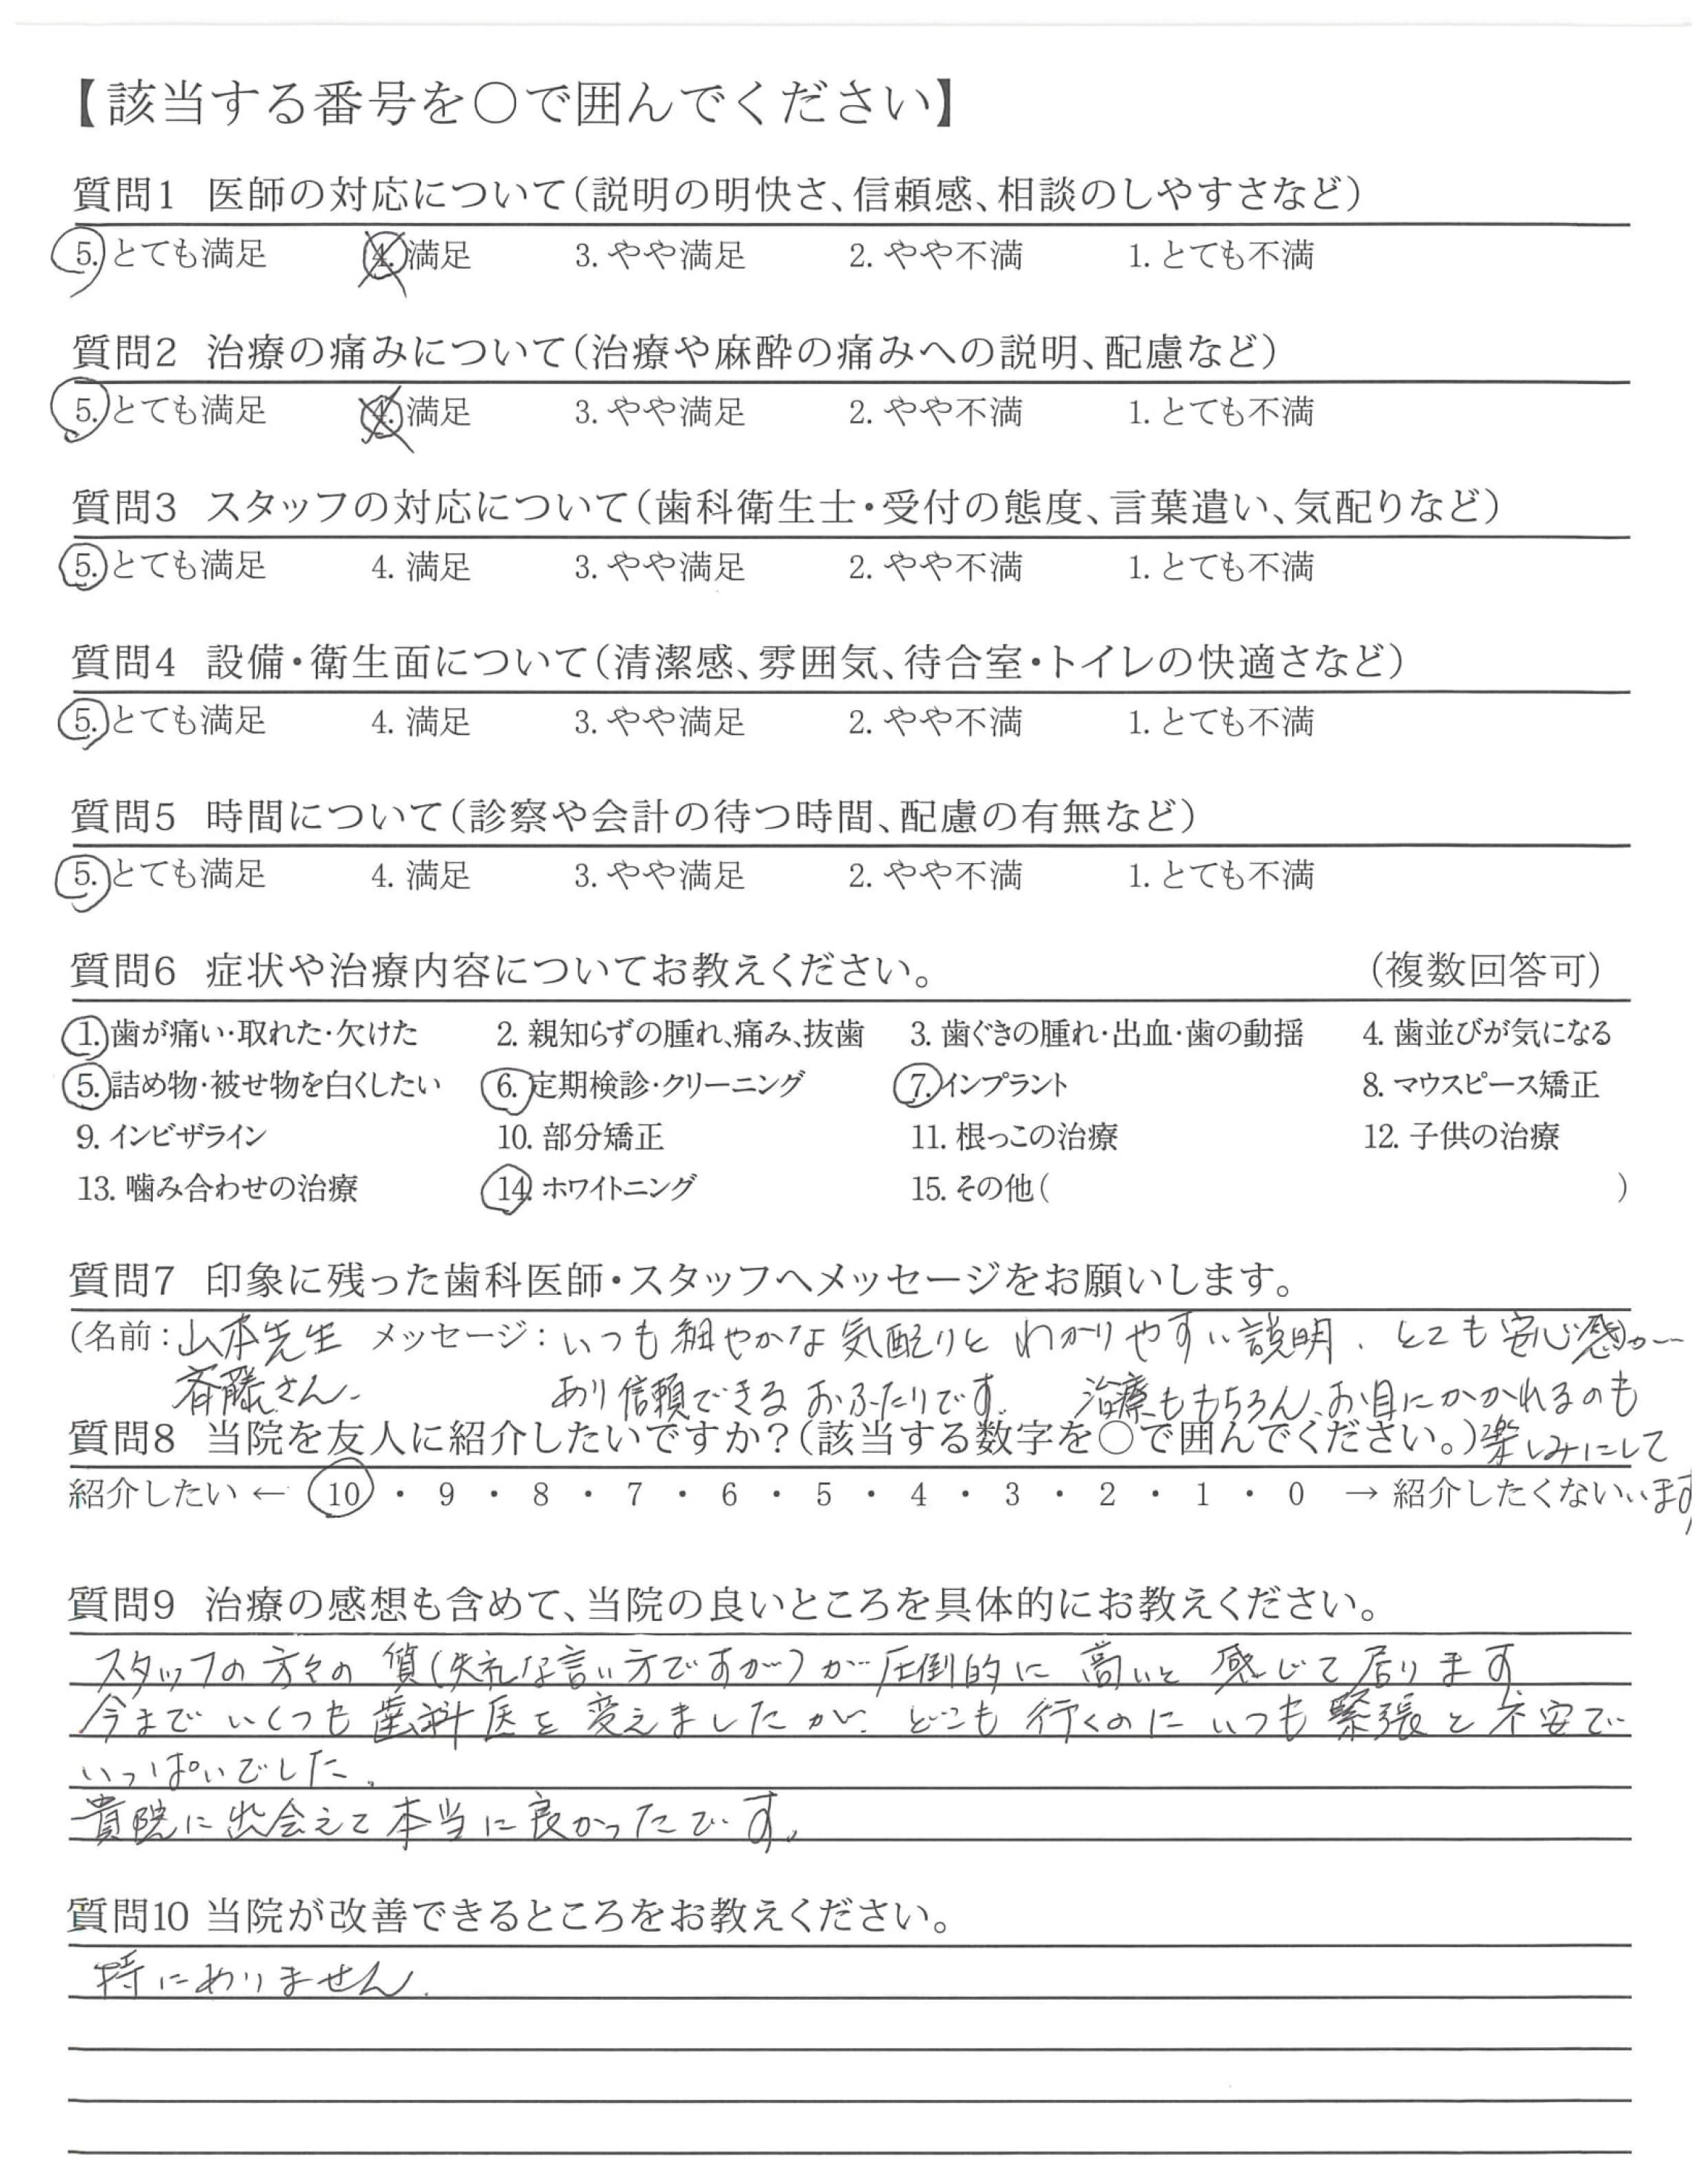 【該当する番号を○で囲んでください】
質問1 医師の対応について（説明の明快さ、信頼感、相談のしやすさなど）
5. とても満足 4. 満足 3. やや満足 2. やや不満 1. とても不満
質問2 治療の痛みについて（治療や麻酔の痛みへの説明、配慮など）
5. とても満足 4. 満足 3. やや満足 2. やや不満 1. とても不満
質問3 スタッフの対応について（歯科衛生士・受付の態度、言葉遣い、気配りなど）
5. とても満足 4. 満足 3. やや満足 2. やや不満 1. とても不満
質問4 設備・衛生面について（清潔感、雰囲気、待合室・トイレの快適さなど）
5. とても満足 4. 満足 3. やや満足 2. やや不満 1. とても不満
質問5 時間について（診察や会計の待つ時間、配慮の有無など）
5. とても満足 4. 満足 3. やや満足 2. やや不満 1. とても不満
質問6 症状や治療内容についてお教えください。 （複数回答可）
1. 歯が痛い・取れた・欠けた 2. 親知らずの腫れ、痛み、抜歯 3. 歯ぐきの腫れ・出血・歯の動揺 4. 歯並びが気になる
5. 詰め物・被せ物を白くしたい 6. 定期検診・クリーニング 7. インプラント 8. マウスピース矯正
9. インビザライン 10. 部分矯正 11. 根っこの治療 12. 子供の治療
13. 噛み合わせの治療 14. ホワイトニング 15. その他（ ）
質問7 印象に残った歯科医師・スタッフへメッセージをお願いします。
（名前：山本先生 メッセージ：いつも細やかな気配りと わかりやすい説明、とても安心感が
斉藤さん あり信頼できるおふたりです。 治療ももちろん、お目にかかれるのも
質問8 当院を友人に紹介したいですか？（該当する数字を○で囲んでください。）楽しみにして
紹介したい ← 10 ・ 9 ・ 8 ・ 7 ・ 6 ・ 5 ・ 4 ・ 3 ・ 2 ・ 1 ・ 0 → 紹介したくない います
質問9 治療の感想も含めて、当院の良いところを具体的にお教えください。
スタッフの方々の 質（失礼な言い方ですが）が圧倒的に 高いと 感じて居ります
今まで いくつも 歯科医を 変えましたが、どこも 行くのに いつも 緊張と 不安で
いっぱいでした。
貴院に出会えて本当に良かったです。
質問10 当院が改善できるところをお教えください。
特にありません。